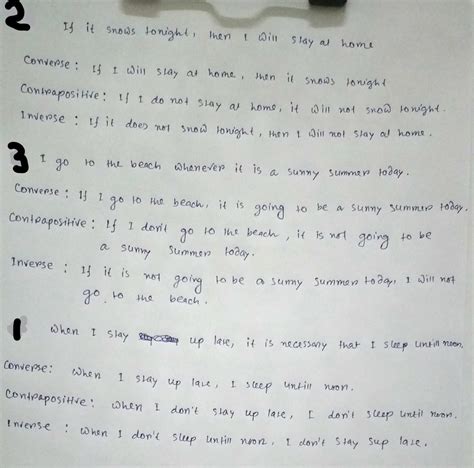 2
If it snows tonight, then I will stay at home
Converse : If I will stay at home, then it snows tonight
Contrapositive : If I do not stay at home, it will not snow tonight.
Inverse : If it does not snow tonight, then I will not stay at home.
3 I go to the beach whenever it is a sunny summer today.
Converse : If I go to the beach, it is going to be a sunny summer today.
Contrapositive : If I don't go to the beach, it is not going to be
a sunny summer today.
Inverse : If it is not going to be a sunny summer today, I will not
go to the beach.
1 When I stay up late, it is necessary that I sleep untill noon.
Converse: When I stay up late, I sleep untill noon.
Contrapositive: When I don't stay up late, I don't sleep until noon.
Inverse : When I don't sleep untill noon, I don't stay sup late.